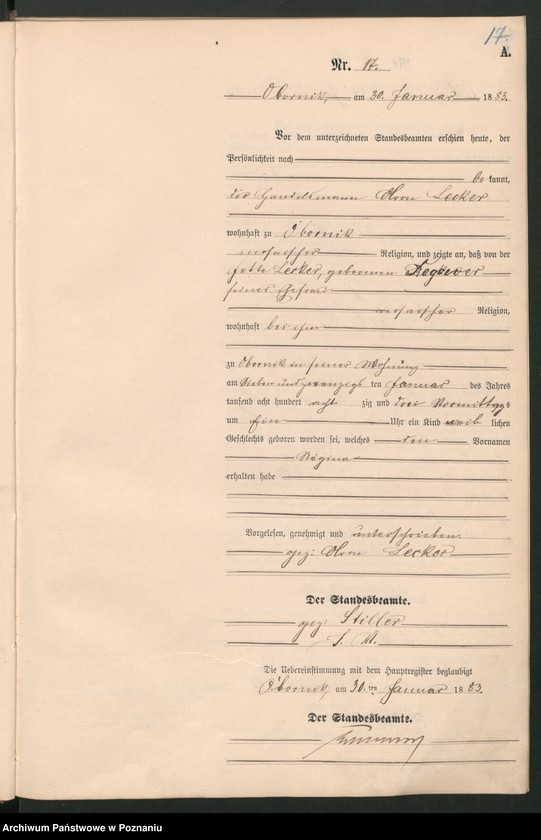 17.
A.
Nr. 17.
Obornik, am 30. Januar 1883.
Vor dem unterzeichneten Standesbeamten erschien heute, der
Persönlichkeit nach
be kannt,
der Handelsmann Lecker
wohnhaft zu Obornik
mosaischer Religion, und zeigte an, daß von der
Lecker, geborenen
seiner Ehefrau
mosaischer Religion,
wohnhaft bei ihm
zu Obornik in seiner Wohnung
am siebenundzwanzigsten Januar des Jahres
tausend acht hundert acht zig und drei Vormittags
um Ein Uhr ein Kind weib lichen
Geschlechts geboren worden sei, welches den Vornamen
Regina
erhalten habe
Vorgelesen, genehmigt und unterschrieben.
gez: Lecker
Der Standesbeamte.
gez: Stiller
Die Uebereinstimmung mit dem Hauptregister beglaubigt
Obornik, am 30.ten Januar 1883.
Der Standesbeamte.
Archiwum Państwowe w Poznaniu